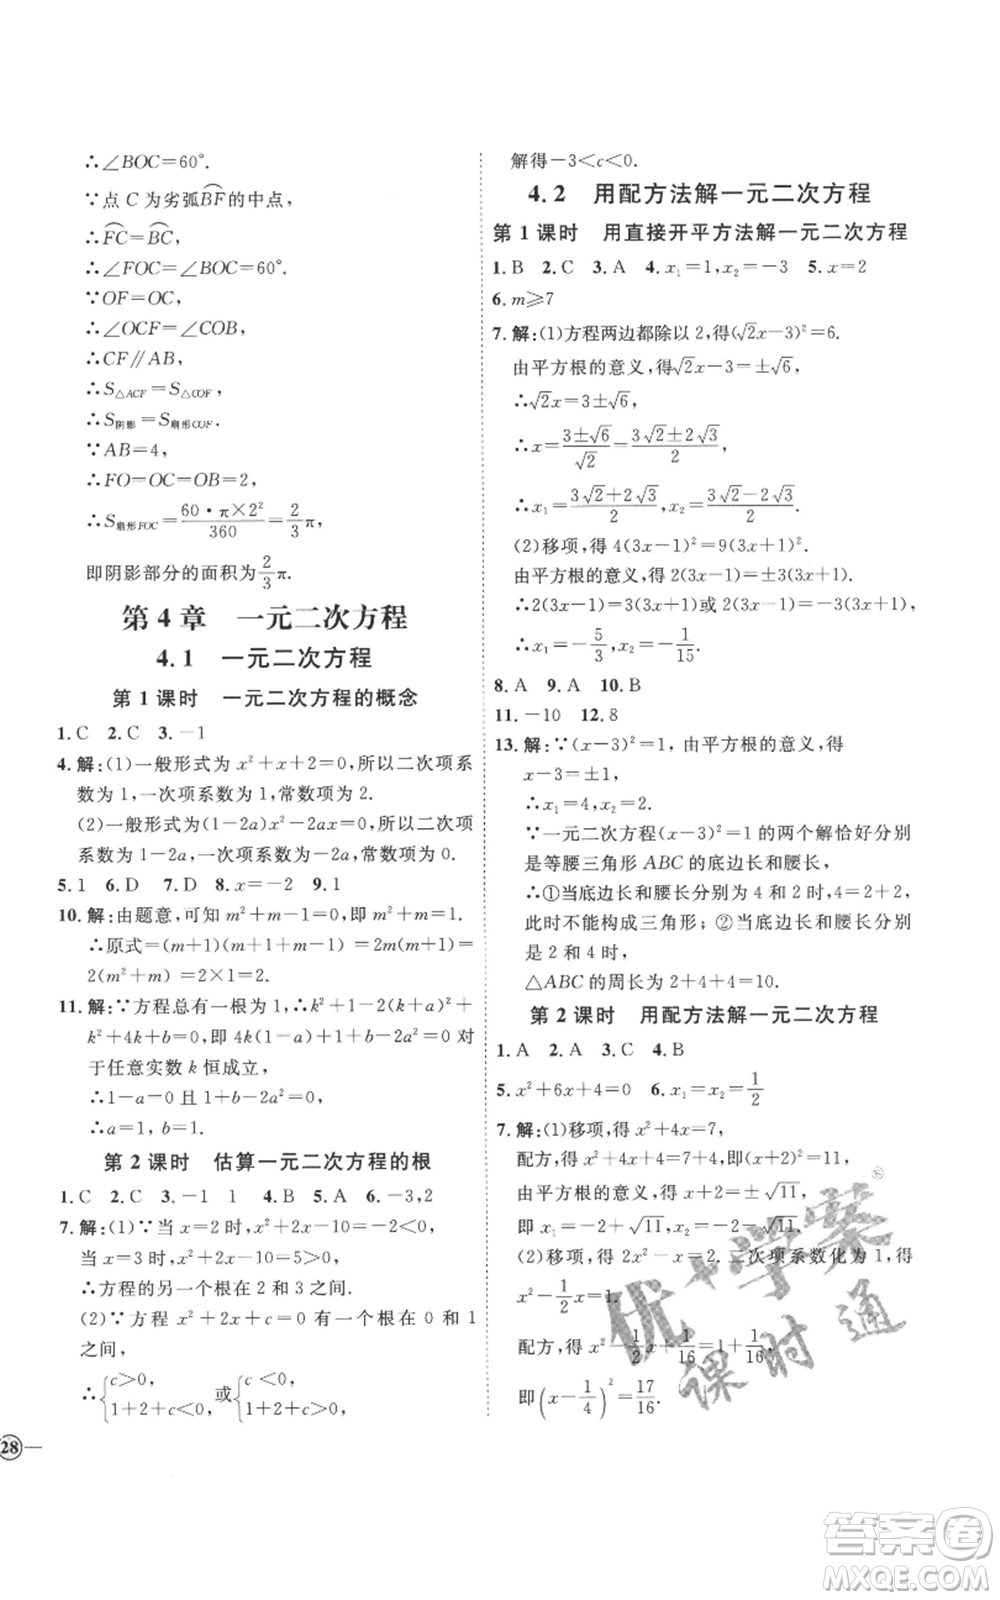 ∴∠BOC=60°.
∵点 C 为劣弧B͡F的中点,
∴F͡C=B͡C,
∴∠FOC=∠BOC=60°.
∵OF=OC,
∴∠OCF=∠COB,
∴CF∥AB,
∴S△ACF=S△COF,
∴S阴影=S扇形COF.
∵AB=4,
∴FO=OC=OB=2,
∴S扇形FOC=60·π×2²/360=2/3π,
即阴影部分的面积为2/3π.
第 4 章 一元二次方程
4.1 一元二次方程
第 1 课时 一元二次方程的概念
1. C 2. C 3. -1
4. 解:(1)一般形式为 x²+x+2=0,所以二次项系
数为 1,一次项系数为 1,常数项为 2.
(2)一般形式为(1-2a)x²-2ax=0,所以二次项
系数为 1-2a,一次项系数为-2a,常数项为 0.
5. 1 6. D 7. D 8. x=-2 9. 1
10. 解:由题意,可知 m²+m-1=0,即 m²+m=1.
∴原式=(m+1)(m+1+m-1)=2m(m+1)=
2(m²+m)=2×1=2.
11. 解:∵方程总有一根为 1,∴k²+1-2(k+a)²+
k²+4k+b=0,即 4k(1-a)+1+b-2a²=0 对
于任意实数 k 恒成立,
∴1-a=0 且 1+b-2a²=0,
∴a=1,b=1.
第 2 课时 估算一元二次方程的根
1. C 2. C 3. -1 1 4. B 5. A 6. -3,2
7. 解:(1)∵当 x=2 时,x²+2x-10=-2<0,
当 x=3 时,x²+2x-10=5>0,
∴方程的另一个根在 2 和 3 之间.
(2)∵方程 x²+2x+c=0 有一个根在 0 和 1
之间,
∴{c>0, 1+2+c<0 或{c<0, 1+2+c>0,
28
解得-3<c<0.
4.2 用配方法解一元二次方程
第 1 课时 用直接开平方法解一元二次方程
1. B 2. C 3. A 4. x₁=1,x₂=-3 5. x=2
6. m≥7
7. 解:(1)方程两边都除以 2,得(√2x-3)²=6.
由平方根的意义,得√2x-3=±√6,
∴√2x=3±√6,
∴x=(3±√6)/√2=(3√2±2√3)/2,
∴x₁=(3√2+2√3)/2,x₂=(3√2-2√3)/2.
(2)移项,得 4(3x-1)²=9(3x+1)².
由平方根的意义,得 2(3x-1)=±3(3x+1),
∴2(3x-1)=3(3x+1)或 2(3x-1)=-3(3x+1),
∴x₁=-5/3,x₂=-1/15.
8. A 9. A 10. B
11. -10 12. 8
13. 解:∵(x-3)²=1,由平方根的意义,得
x-3=±1,
∴x₁=4,x₂=2.
∵一元二次方程(x-3)²=1 的两个解恰好分别
是等腰三角形 ABC 的底边长和腰长,
∴①当底边长和腰长分别为 4 和 2 时,4=2+2,
此时不能构成三角形;②当底边长和腰长分别
是 2 和 4 时,
△ABC 的周长为 2+4+4=10.
第 2 课时 用配方法解一元二次方程
1. A 2. A 3. C 4. B
5. x²+6x+4=0 6. x₁=x₂=1/2
7. 解:(1)移项,得 x²+4x=7,
配方,得 x²+4x+4=7+4,即(x+2)²=11,
由平方根的意义,得 x+2=±√11,
即 x₁=-2+√11,x₂=-2-√11.
(2)移项,得 2x²-x=2.二次项系数化为 1,得
x²-1/2x=1.
配方,得 x²-1/2x+1/16=1+1/16,
即(x-1/4)²=17/16.
优+学案
课时通
答案卷
MXQE.COM